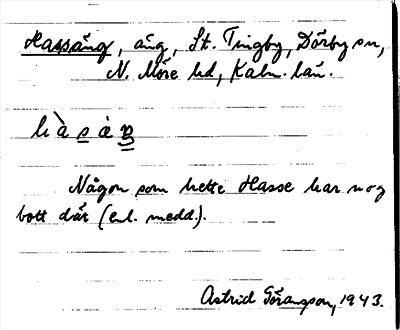 Hassäng, äng, St. Tingby, Dörby sn,
N. Möre hd, Kalm. län.
hàsäŋ
Någon som hette Hasse har nog
bott där (enl. medd.).
Astrid Göransson, 1943.